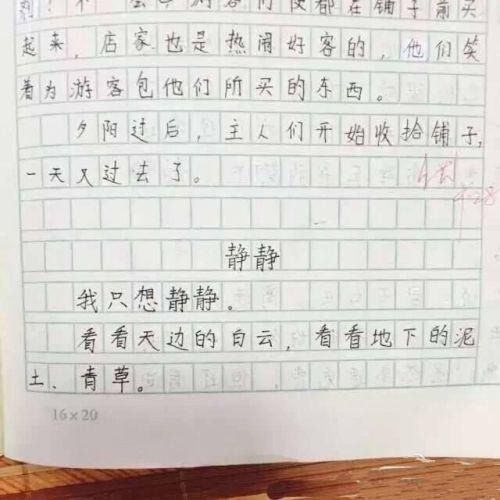 子前买
起来，店家也是热闹好客的，他们笑
着为游客包他们所买的东西。
夕阳过后，主人们开始收拾铺子，
一天又过去了。
静静
我只想静静。
看看天边的白云，看看地下的泥
土、青草。
16×20